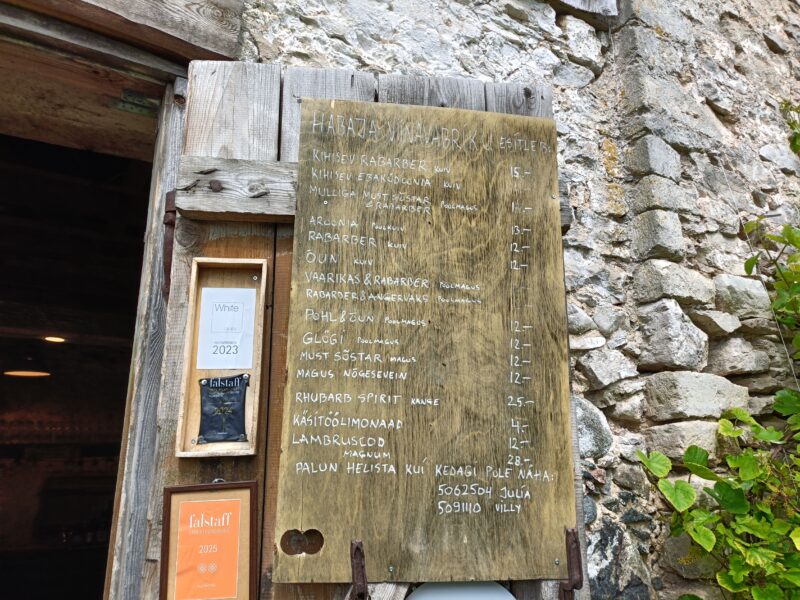 HABAJA VINAVABRIK ESITLEB
KIHISEV RABARBER KUIV 15.-
KIHISEV EBAKÜDOONIA KUIV
MULLIGA MUST SÕSTAR
& RABARBER POOLMAGUS
AROONIA POOLKUIV 13.-
RABARBER KUIV 12.-
ÕUN KUIV 12.-
VAARIKAS & RABARBER POOLMAGUS
RABARBER & ANGERVAKS POOLMAGUS
POHL & ÕUN POOLMAGUS 12.-
GLÖGI POOLMAGUS 12.-
MUST SÕSTAR MAGUS 12.-
MAGUS NÕGESEVEIN 12.-
RHUBARB SPIRIT KANGE 25.-
KÄSITÖÖLIMONAAD 4.-
LAMBRUSCOD 12.-
MAGNUM 28.-
PALUN HELISTA KUI KEDAGI POLE NÄHA:
5062504 JULIA
5091110 VILLY
White
2023
falstaff
2024
falstaff
2025